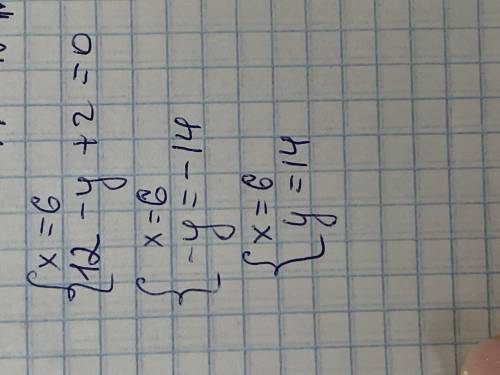 x = 6
12 - y + 2 = 0
x = 6
- y = - 14
x = 6
y = 14